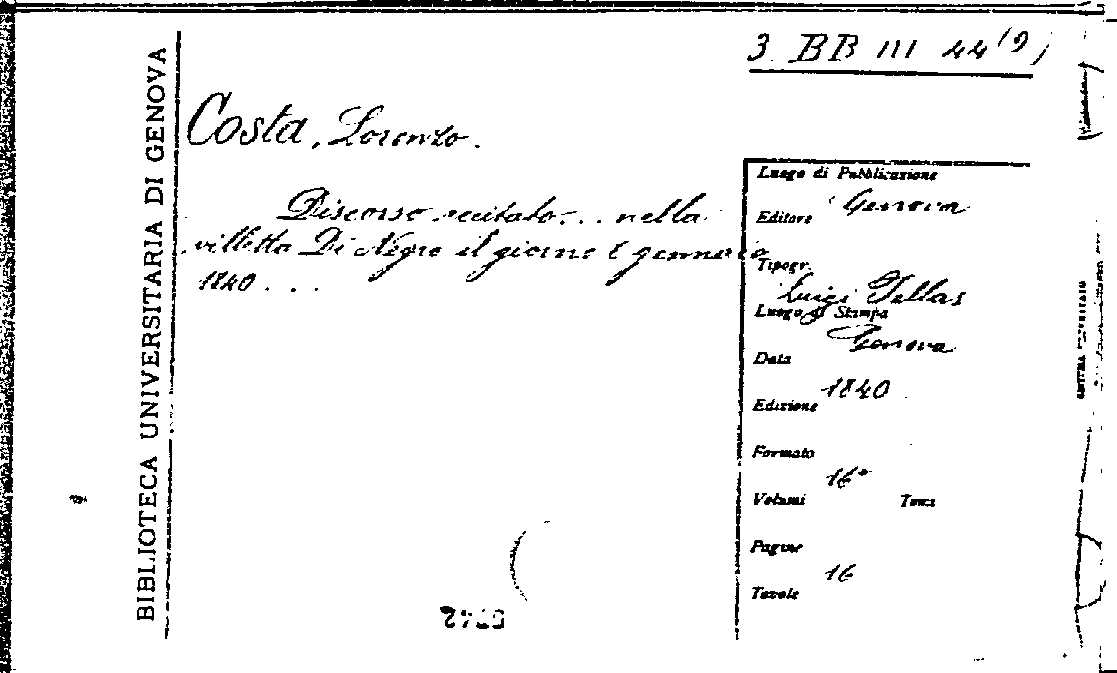 3 BB III 44(9)
BIBLIOTECA UNIVERSITARIA DI GENOVA
Costa, Lorenzo.
Discorso recitato... nella
villetta Di Negro il giorno 8 gennaio
1840...
Luogo di Pubblicazione
Genova
Editore
Tipogr.
Luigi Pellas
Luogo di Stampa
Genova
Data
1840
Edizione
Formato
16°
Volumi Tomi
Pagine
16
Tavole